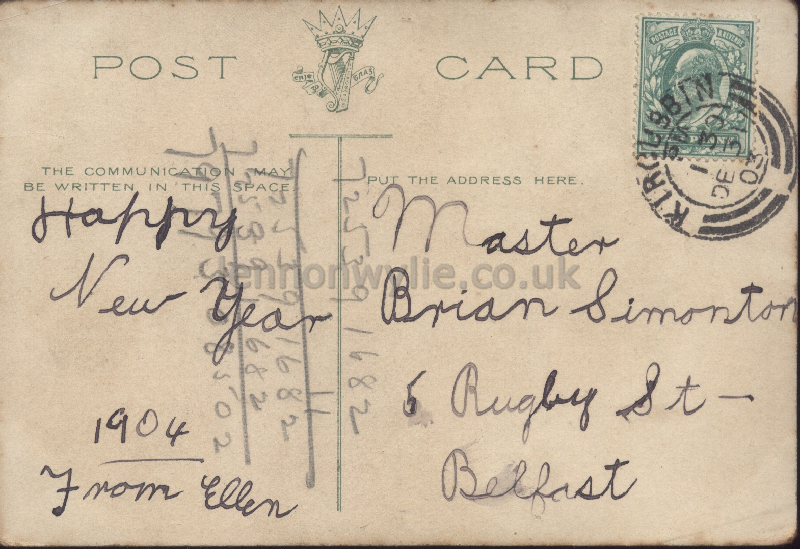 POST CARD
ERIN GO BRAGH
THE COMMUNICATION MAY
BE WRITTEN IN THIS SPACE
PUT THE ADDRESS HERE.
KIRCUBBIN
DE 31
03
Happy
New Year
1904
From Ellen
Master
Brian Simonton
5 Rugby St —
Belfast
72539 1682
lennonwylie.co.uk